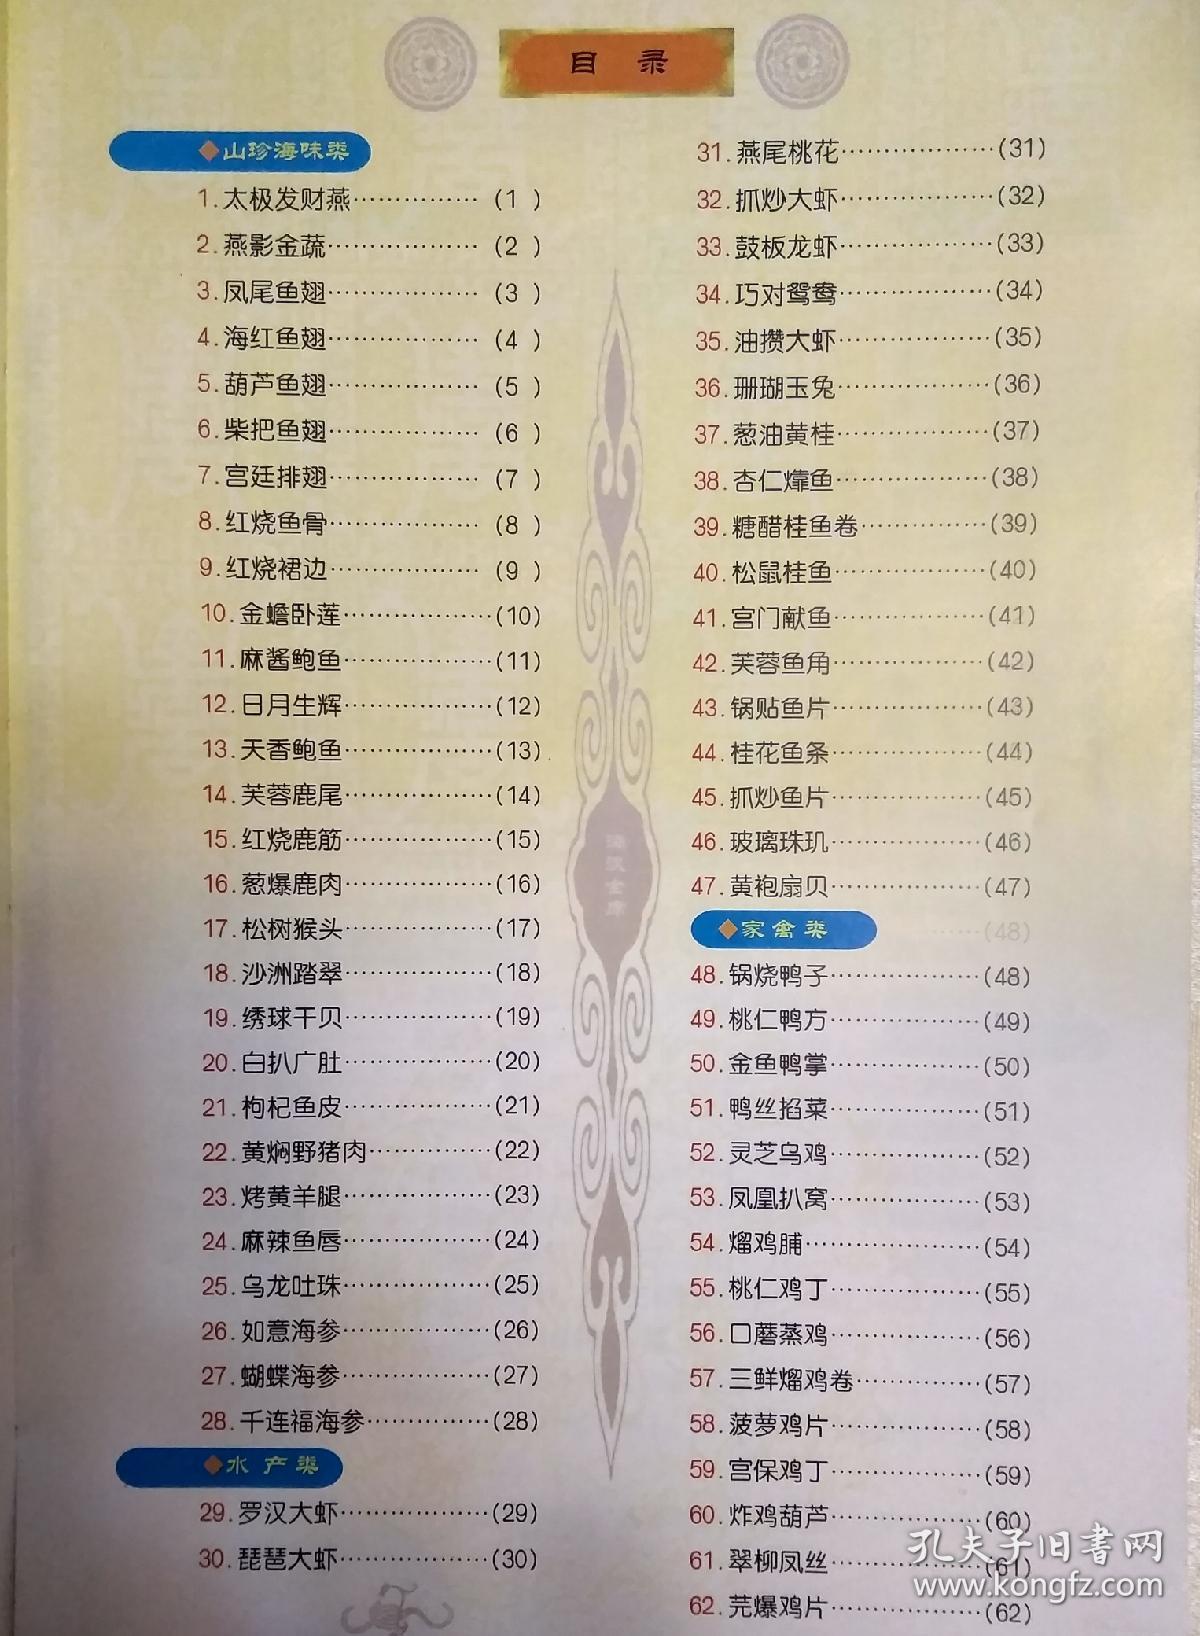 目 录
◆山珍海味类
1.太极发财燕……………(1 )
2.燕影金蔬………………(2 )
3.凤尾鱼翅………………(3 )
4.海红鱼翅………………(4 )
5.葫芦鱼翅………………(5 )
6.柴把鱼翅………………(6 )
7.宫廷排翅………………(7 )
8.红烧鱼骨………………(8 )
9.红烧裙边………………(9 )
10.金蟾卧莲………………(10)
11.麻酱鲍鱼………………(11)
12.日月生辉………………(12)
13.天香鲍鱼………………(13)
14.芙蓉鹿尾………………(14)
15.红烧鹿筋………………(15)
16.葱爆鹿肉………………(16)
17.松树猴头………………(17)
18.沙洲踏翠………………(18)
19.绣球干贝………………(19)
20.白扒广肚………………(20)
21.枸杞鱼皮………………(21)
22.黄焖野猪肉……………(22)
23.烤黄羊腿………………(23)
24.麻辣鱼唇………………(24)
25.乌龙吐珠………………(25)
26.如意海参………………(26)
27.蝴蝶海参………………(27)
28.千连福海参……………(28)
◆水 产 类
29.罗汉大虾………………(29)
30.琵琶大虾………………(30)
31.燕尾桃花………………(31)
32.抓炒大虾………………(32)
33.鼓板龙虾………………(33)
34.巧对鸳鸯………………(34)
35.油攒大虾………………(35)
36.珊瑚玉兔………………(36)
37.葱油黄桂………………(37)
38.杏仁㸆鱼………………(38)
39.糖醋桂鱼卷……………(39)
40.松鼠桂鱼………………(40)
41.宫门献鱼………………(41)
42.芙蓉鱼角………………(42)
43.锅贴鱼片………………(43)
44.桂花鱼条………………(44)
45.抓炒鱼片………………(45)
46.玻璃珠玑………………(46)
47.黄袍扇贝………………(47)
◆家 禽 类
(48)
48.锅烧鸭子………………(48)
49.桃仁鸭方………………(49)
50.金鱼鸭掌………………(50)
51.鸭丝掐菜………………(51)
52.灵芝乌鸡………………(52)
53.凤凰扒窝………………(53)
54.熘鸡脯…………………(54)
55.桃仁鸡丁………………(55)
56.口蘑蒸鸡………………(56)
57.三鲜熘鸡卷……………(57)
58.菠萝鸡片………………(58)
59.宫保鸡丁………………(59)
60.炸鸡葫芦………………(60)
61.翠柳凤丝………………(61)
62.芫爆鸡片………………(62)
满汉全席
孔夫子旧书网
www.kongfz.com